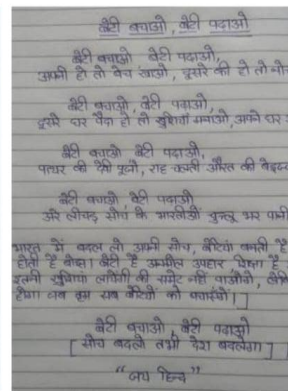 बेटी बचाओ, बेटी पढाओ
बेटी बचाओ बेटी पढाओ,
अपनी हो तो बेच खाओ, दूसरे की हो तो नोच
बेटी बचाओ, बेटी पढाओ,
दूसरे घर पैदा हो तो खुशियां मनाओ, अपने घर
बेटी बचाओ बेटी पढाओ,
पत्थर की देवी पूजो, राह चलती औरत की
बेटी बचाओ बेटी पढाओ
अरे लीचड़ सोच के भारतीओं चुल्लू भर पानी
भारत में बदल लो अपनी सोच, बेटियां है
होती है बेटी है अनमोल उपहार है
इतनी खुशियां लायेगी की समेट नहीं पाओगे,
होगा जब हम सब बेटियों को
बेटी बचाओ, बेटी पढाओ
[ सोच बदलो तभी देश बदलेगा ]
"जय हिन्द"